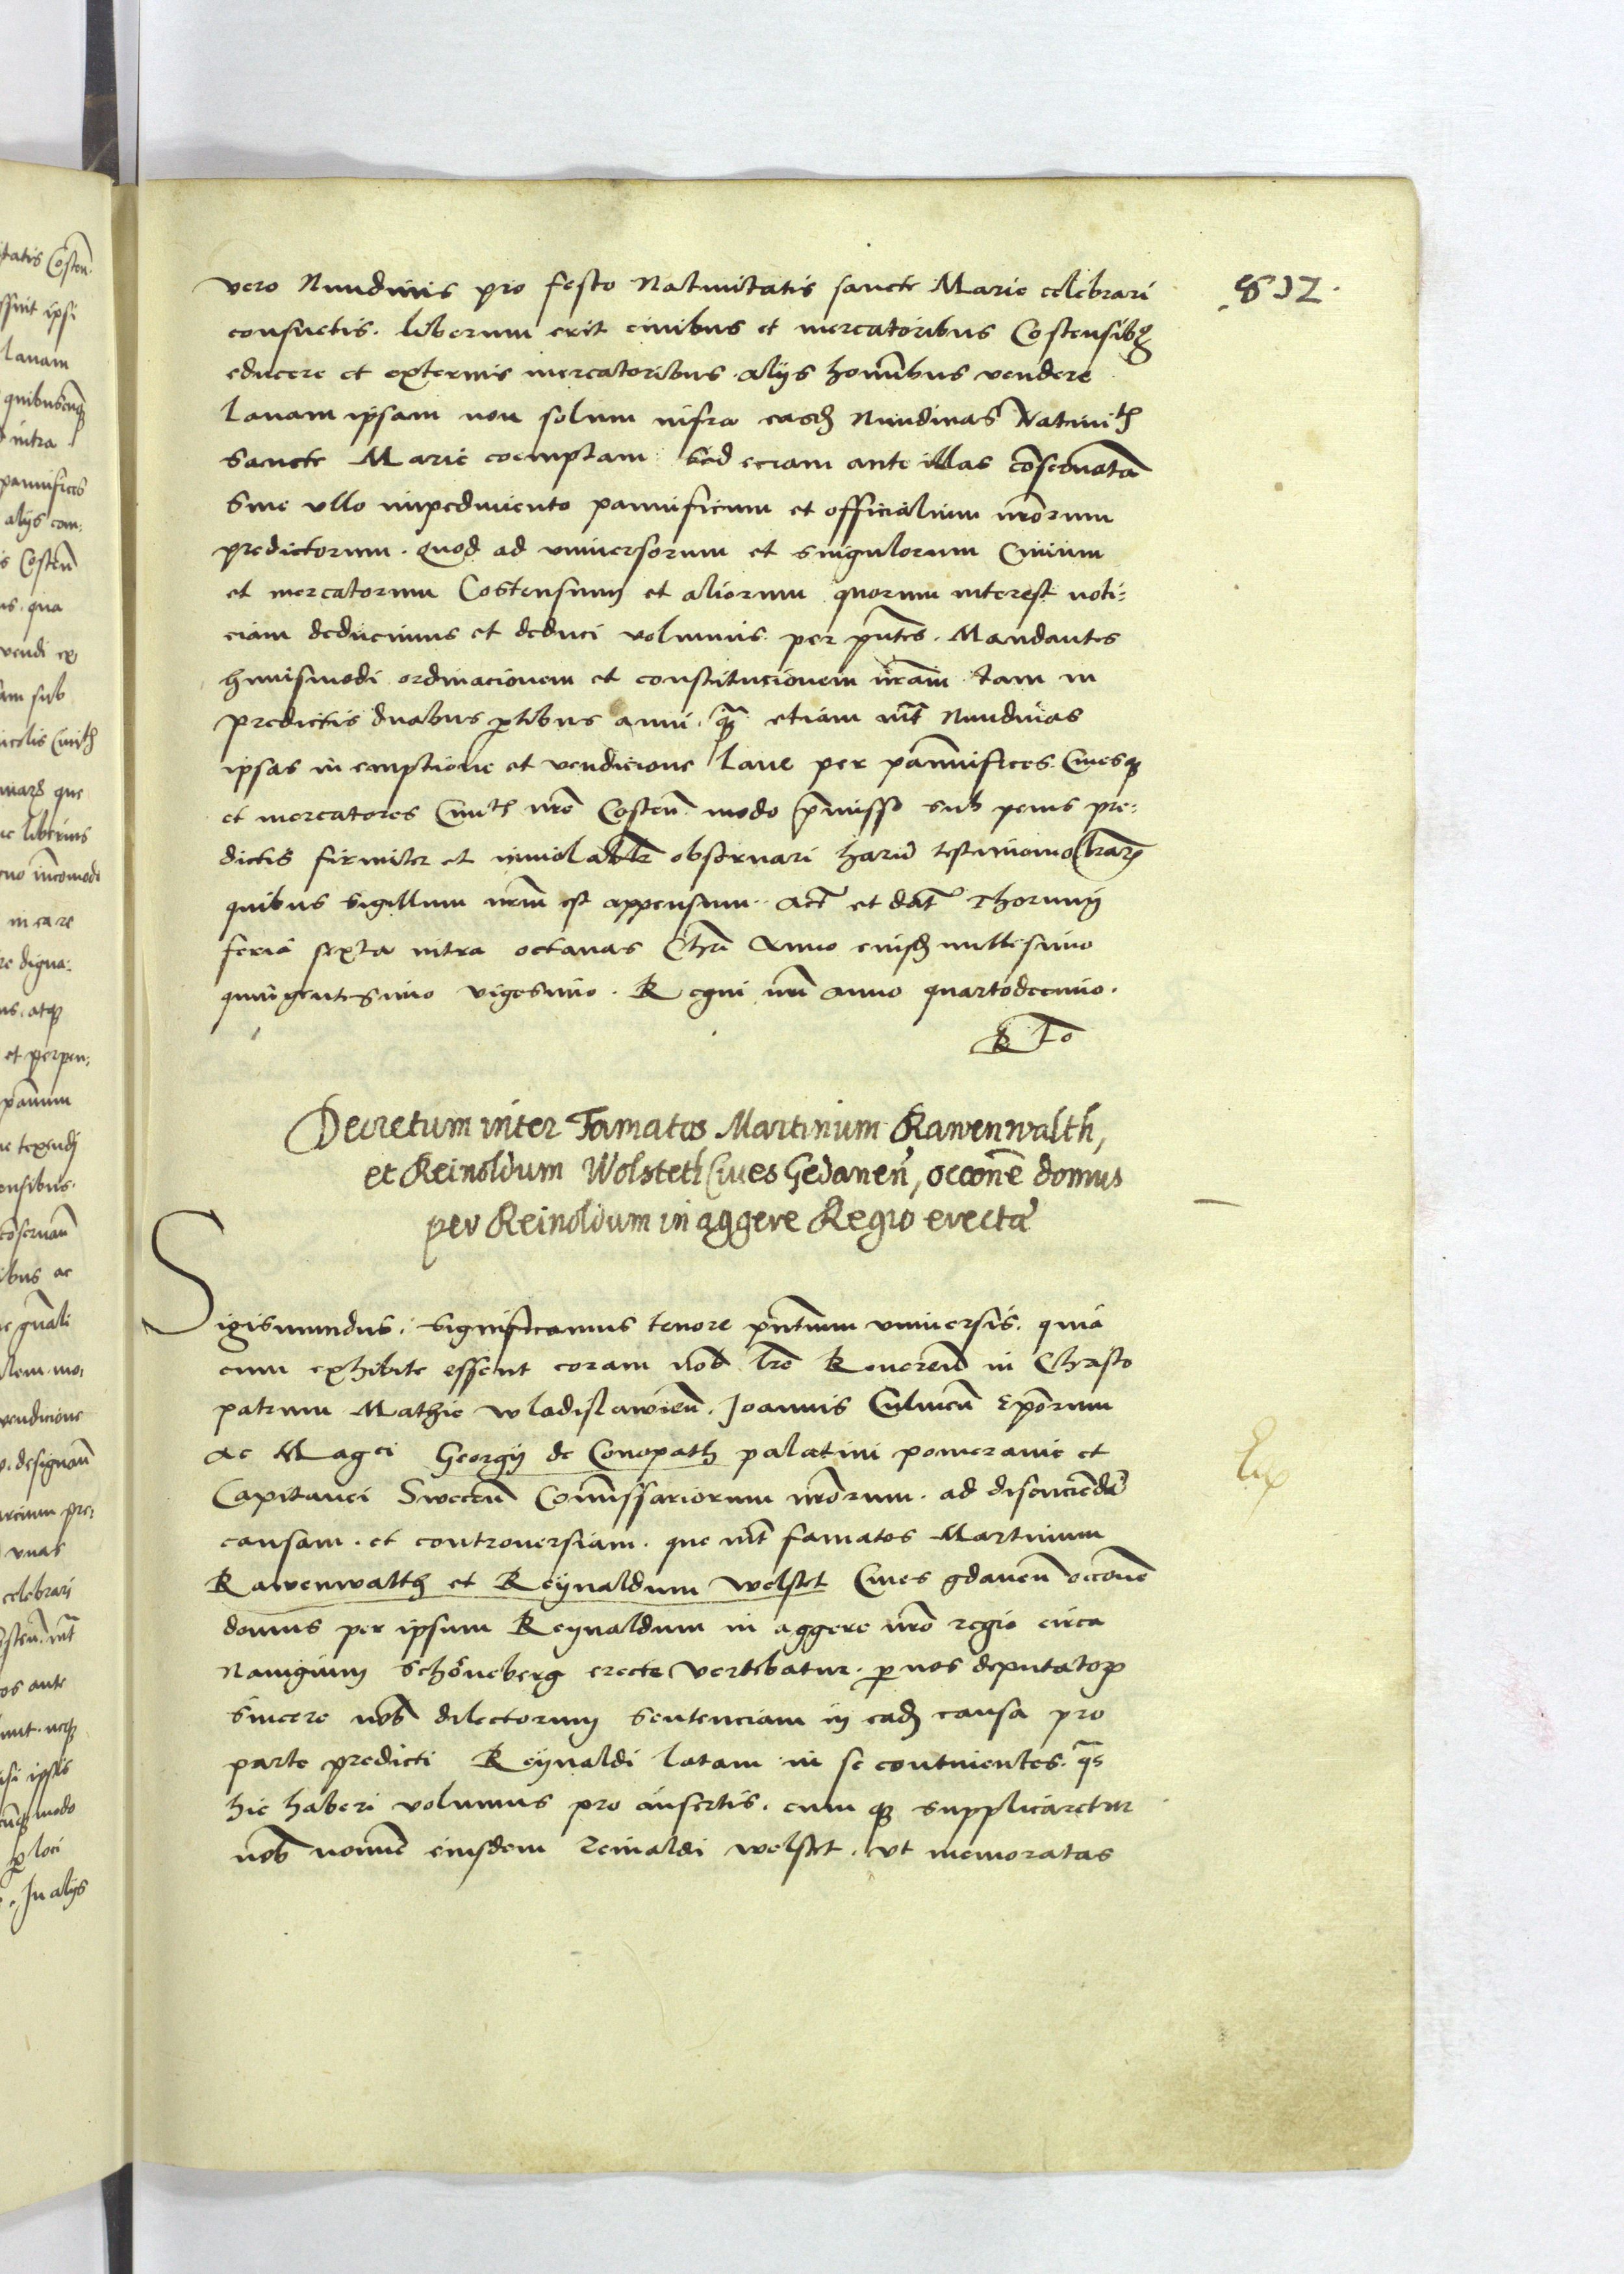 812.
vero Nundinis pro festo Natiuitatis sancte Marie celebrari
consuetis. liberum erit ciuibus et mercatoribus Costensibȝ
educere et externis mercatoribus alijs hominibus vendere
lanam ipsam non solum infra easdē Nundinas Natiuitꝭ
sancte Marie coemptam sed eciam ante illas cōseruatā
sine vllo impedimento pannificum et officialium nr̄orum
predictorum. Quod ad vniuersorum et singulorum Ciuium
et mercatorum Costensium et aliorum quorum interest noti:
ciam deducimus et deduci volumus per pn̄tes. Mandantes
huiusmodi ordinacionem et constitucionem nr̄am tam in
predictis duabus ꝑtibus anni. qꝫ̄ etiam int̄ Nundinas
ipsas in emptione et vendicione lane per pannifices Ciuesqꝫ
et mercatores Ciuitꝭ nr̄e Costen̄ modo p̄misso sub penis pre:
dictis firmiter et inuiolabilr̄ obseruari harū testimonio lr̄arꝝ
quibus sigillum nr̄m est appensum. Act̄ et dat̄ Thorunij
feria sexta intra octauas Chrī Anno eiusdē millesimo
quingentesimo vigesimo. Regni nr̄i anno quartodecimo.
R To
Decretum inter Famatos Martinum Rawenwalth,
et Reinoldum Wolsteth Ciues Gedanen̄, occōne domus
per Reinoldum in aggere Regio erectæ
Sigismundus. significamus tenore pn̄tium vniuersis. quia
cum exhibite essent coram nob̄ lr̄e Reueren̄ in Christo
patrum Mathie wladislawien̄. Joannis Culmen̄ Ep̄orum
ac Magci Georgij de Conopath palatini pomeranie et
Capitanei Swecen̄ Com̄issariorum nr̄orum. ad discuciendā
causam. et controuersiam. que int̄ famatos Martinum
Rawenwalth et Reijnaldum welstet Ciues gdanen̄ occōne
domus per ipsum Reynaldum in aggere nr̄o regio circa
Nauigium Schöneberg erecte vertebatur. ꝑ nos deputatoꝝ
sincere nob̄ dilectorum sentenciam in eadē causa pro
parte predicti Reijnaldi latam in se continentes. qs̄
hic haberi volumus pro insertis. cum qꝫ supplicaretur
nob̄ nomīe eiusdem Reinaldi welstet. vt memoratas